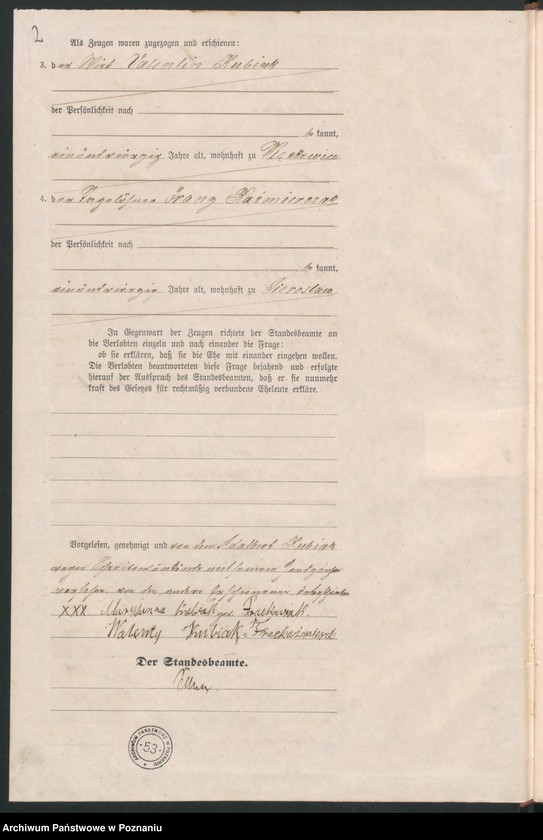 2
Als Zeugen waren zugezogen und erschienen:
3. der Wirt Valentin Kubiak
der Persönlichkeit nach
be kannt,
einundvierzig Jahre alt, wohnhaft zu
4. der Tagelöhner Franz Kaźmierczak
der Persönlichkeit nach
be kannt,
einundvierzig Jahre alt, wohnhaft zu
In Gegenwart der Zeugen richtete der Standesbeamte an
die Verlobten einzeln und nach einander die Frage:
ob sie erklären, daß sie die Ehe mit einander eingehen wollen.
Die Verlobten beantworteten diese Frage bejahend und erfolgte
hierauf der Ausspruch des Standesbeamten, daß er sie nunmehr
kraft des Gesetzes für rechtmäßig verbundene Eheleute erkläre.
Vorgelesen, genehmigt und von dem Adalbert Kubiak
wegen
von den
XXX Maryanna Kubiak geb.
Walenty Kubiak
Der Standesbeamte.
ARCHIWUM PAŃSTWOWE W POZNANIU
53
Archiwum Państwowe w Poznaniu